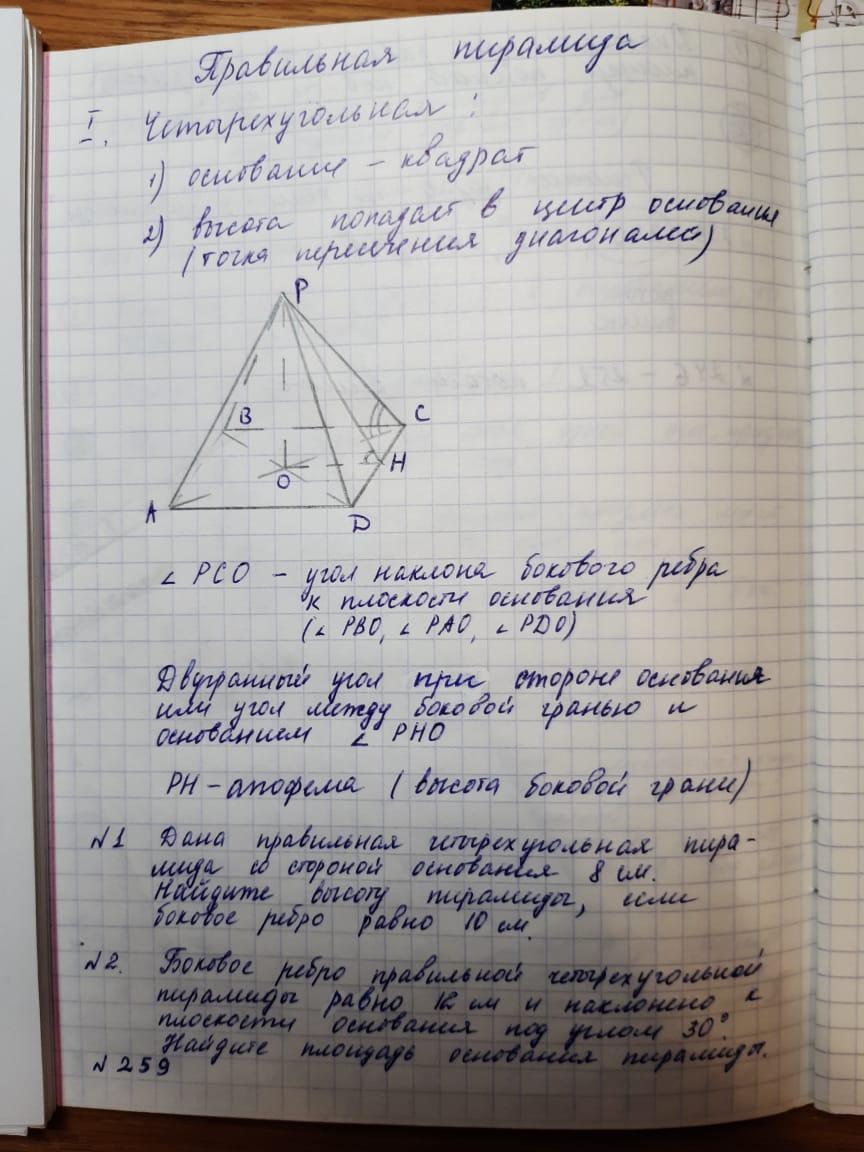 Правильная пирамида
I. Четырехугольная:
1) основание – квадрат
2) высота попадает в центр основания
(точка пересечения диагоналей)
P
B
C
O
H
A
D
∠ PCO – угол наклона бокового ребра
к плоскости основания
(∠ PBO, ∠ PAO, ∠ PDO)
Двугранный угол при стороне основания
или угол между боковой гранью и
основанием ∠ PHO
PH – апофема (высота боковой грани)
№1 Дана правильная четырехугольная пира-
мида со стороной основания 8 см.
Найдите высоту пирамиды, если
боковое ребро равно 10 см.
№2. Боковое ребро правильной четырехугольной
пирамиды равно 12 см и наклонено к
плоскости основания под углом 30°.
Найдите площадь основания пирамиды.
№259